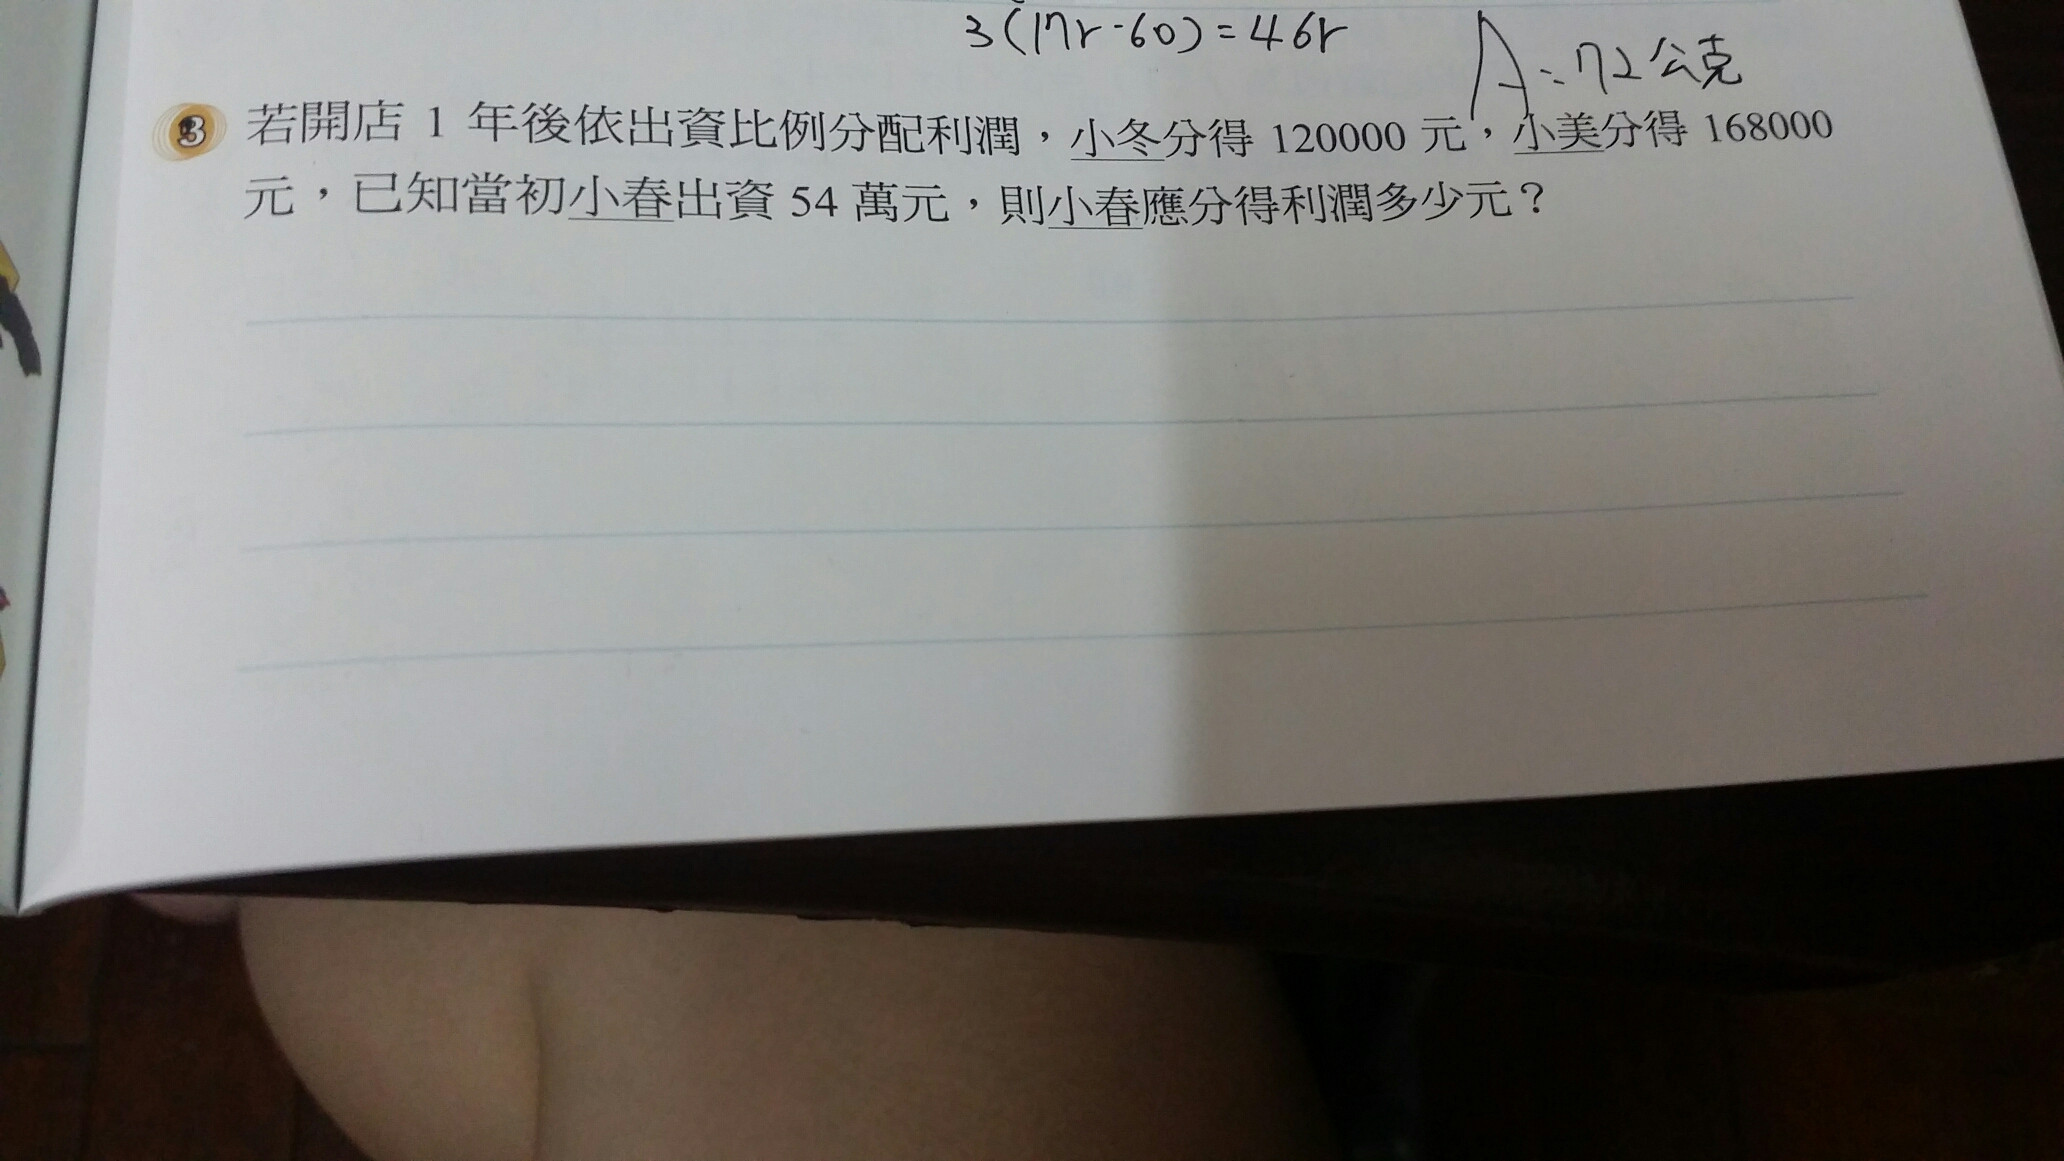 3(17r-60)=46r
A=72公克
3 若開店 1 年後依出資比例分配利潤，小冬分得 120000 元，小美分得 168000
元，已知當初小春出資 54 萬元，則小春應分得利潤多少元？